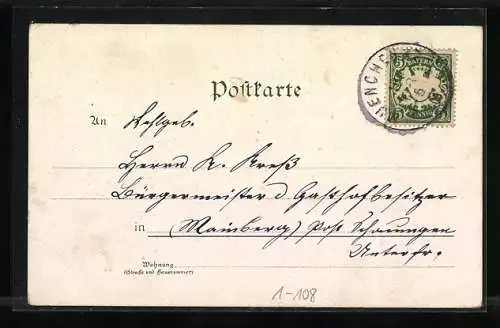 Postkarte
An Wohlgeb.
Herrn K. Kreß
Bürgermeister & Gasthofbesitzer
in (Mainberg) Post Schonungen
Unterfr.
Wohnung
(Straße und Hausnummer)
1-108
5 BAYERN 5
PFENNIG
MUENCHEN